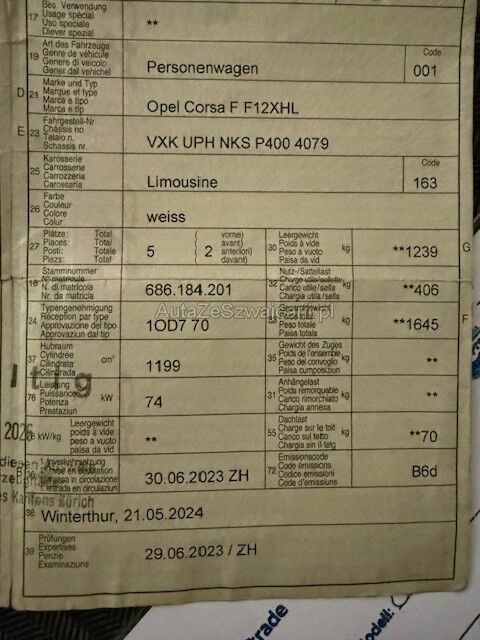 Bes. Verwendung
Usage spécial
Uso speciale
Diever spezial
17
**
19
Art des Fahrzeugs
Genre de véhicule
Genere di veicolo
Gener dal vehichel
Personenwagen
Code
001
D
21
Marke und Typ
Marque et type
Marca e tipo
Marca e tip
Opel Corsa F F12XHL
E
23
Fahrgestell-Nr
Châssis no
Telaio n.
Schassis nr.
VXK UPH NKS P400 4079
25
Karosserie
Carrosserie
Carrozzeria
Carossaria
Limousine
Code
163
26
Farbe
Couleur
Colore
Colur
weiss
27
Plätze: Total
Places: Total
Posti: Totale
Plazs: Total
5
( vorne)
( 2 avant)
( anteriori)
( davant)
30
Leergewicht
Poids à vide
Peso a vuoto
Paisa da vid
kg
**1239
G
18
Stammnummer
N° matricule
N. di matricola
Nr. da matricla
686.184.201
32
Nutz-/Sattellast
Charge utile/sellette
Carico utile/sella
Chargia utila/sella
kg
**406
AutaZeSzwajcarii.pl
24
Typengenehmigung
Réception par type
Approvazione del tipo
Approvaziun dal tip
1OD7 70
33
Gesamtgewicht
Poids total
Peso totale
Paisa totala
kg
**1645
F
37
Hubraum
Cylindrée
Cilindrata
Cilindrada
cm³
1199
35
Gewicht des Zuges
Poids de l'ensemble
Peso del convoglio
Paisa cumposiziun
kg
**
76
Leistung
Puissance
Potenza
Prestaziun
kW
74
31
Anhängelast
Poids remorquable
Carico rimorchiato
Chargia annexa
kg
**
kW/kg
Leergewicht
poids à vide
peso a vuoto
paisa da vid
**
55
Dachlast
Charge sur le toit
Carico sul tetto
Chargia sin il tetg
kg
**70
2026
B
36
1. Inverkehrsetzung
1. entrada en circulaziun
30.06.2023 ZH
72
Emissionscode
Code émissions
Codice emissioni
Code d'emissiuns
B6d
Kantons Zürich
38
Winterthur, 21.05.2024
39
Prüfungen
Expertises
Perizie
Examinaziuns
29.06.2023 / ZH
trade